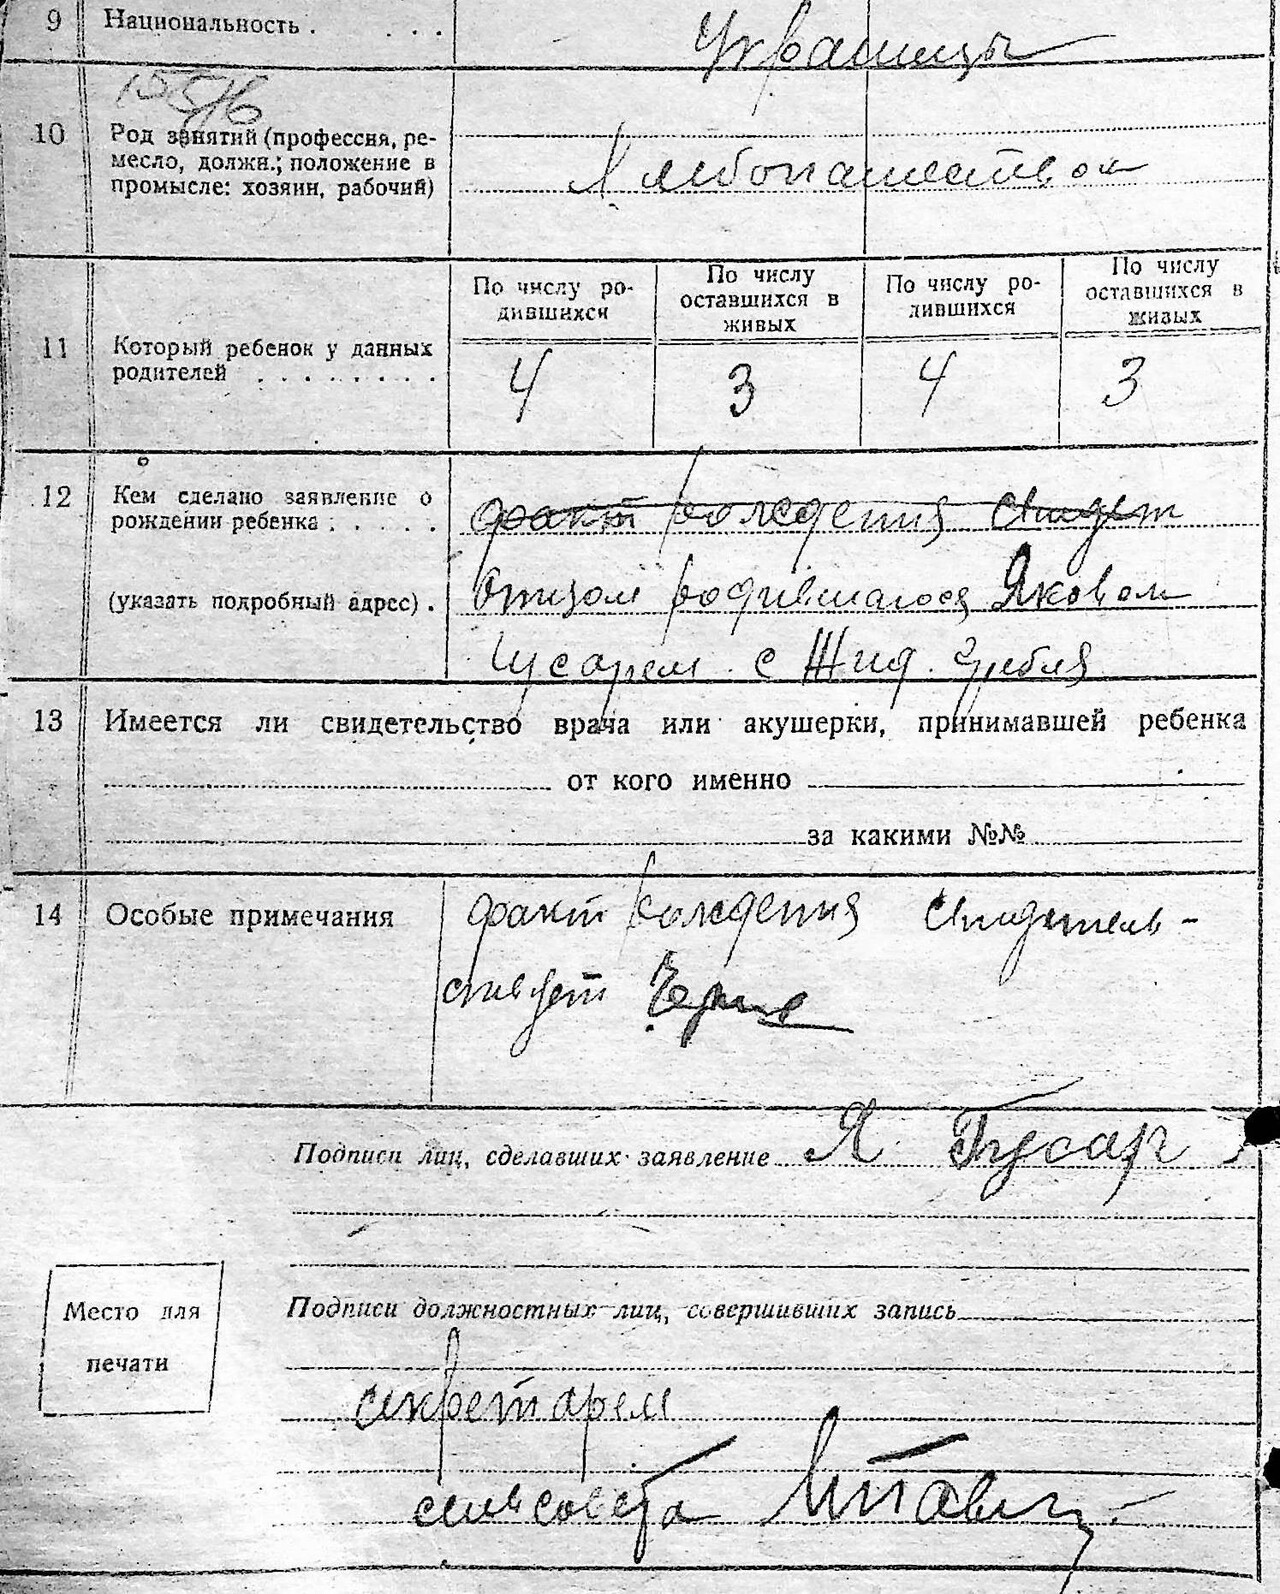 9 Национальность . . . .
Украинцы
10 Род занятий (профессия, ре-
месло, должн.; положение в
промысле: хозяин, рабочий)
Хлебопашеством
По числу ро-
дившихся
По числу
оставшихся в
живых
По числу ро-
дившихся
По числу
оставшихся в
живых
11 Который ребенок у данных
родителей . . . . . . . .
4 3 4 3
12 Кем сделано заявление о
рождении ребенка . . . . .
(указать подробный адрес) .
факт рождения свидет
Отцом родившагося Яковом
Гусарем с Жид. Гребля
13 Имеется ли свидетельство врача или акушерки, принимавшей ребенка
от кого именно
за какими №№
14 Особые примечания
факт рождения свидетель-
ствует
Подписи лиц, сделавших заявление Я Гусар
Место для
печати
Подписи должностных лиц, совершивших запись
секретарем
сельсовета